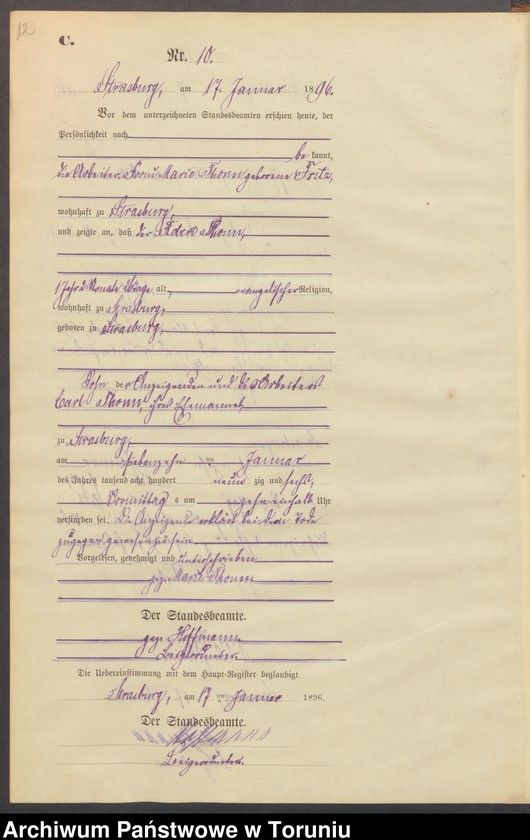 12
C.
Nr. 10.
Strasburg, am 17. Januar 1896.
Vor dem unterzeichneten Standesbeamten erschien heute, der
Persönlichkeit nach
be kannt,
die Arbeiter Frau Marie Thom geborene Fritz,
wohnhaft zu Strasburg,
und zeigte an, daß der
1 Jahr 2 Monate Tage alt, evangelischer Religion,
wohnhaft zu Strasburg,
geboren zu Strasburg,
Sohn der Anzeigenden und des Arbeiters
Carl Thom, ihres Ehemannes
zu Strasburg,
am siebenzehn ten Januar
des Jahres tausend acht hundert neun zig und sechs,
Vormittag s um zehn einhalb Uhr
verstorben sei. Die Anzeigende erklärt bei dem Tode
zugegen gewesen zu sein
Vorgelesen, genehmigt und unterschrieben
gez. Marie Thom
Der Standesbeamte.
gez. Hoffmann
Beigeordneter.
Die Uebereinstimmung mit dem Haupt-Register beglaubigt.
Strasburg, am 17 ten Januar 1896.
Der Standesbeamte.
Beigeordneter.
Archiwum Państwowe w Toruniu